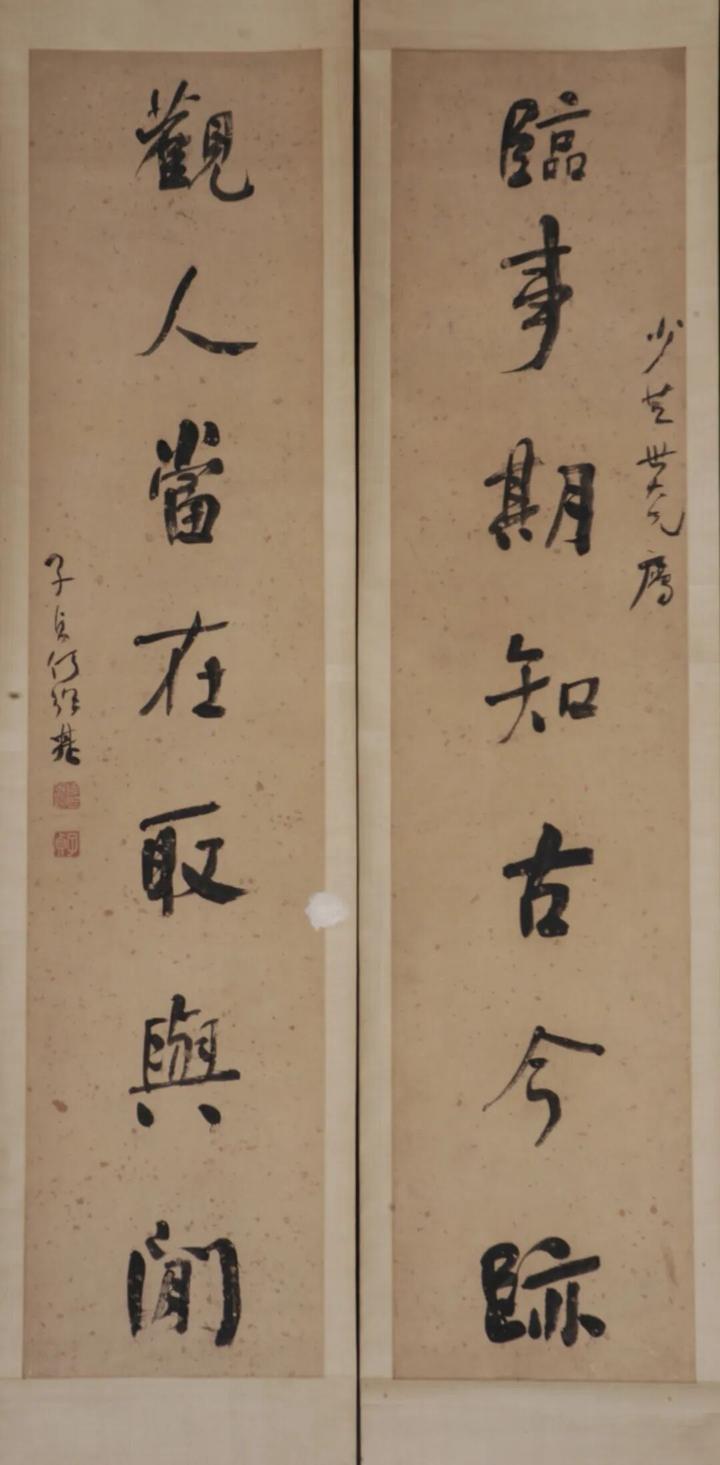 臨事期知古今跡
少芝世大兄鴈
觀人當在取與間
子貞何紹基